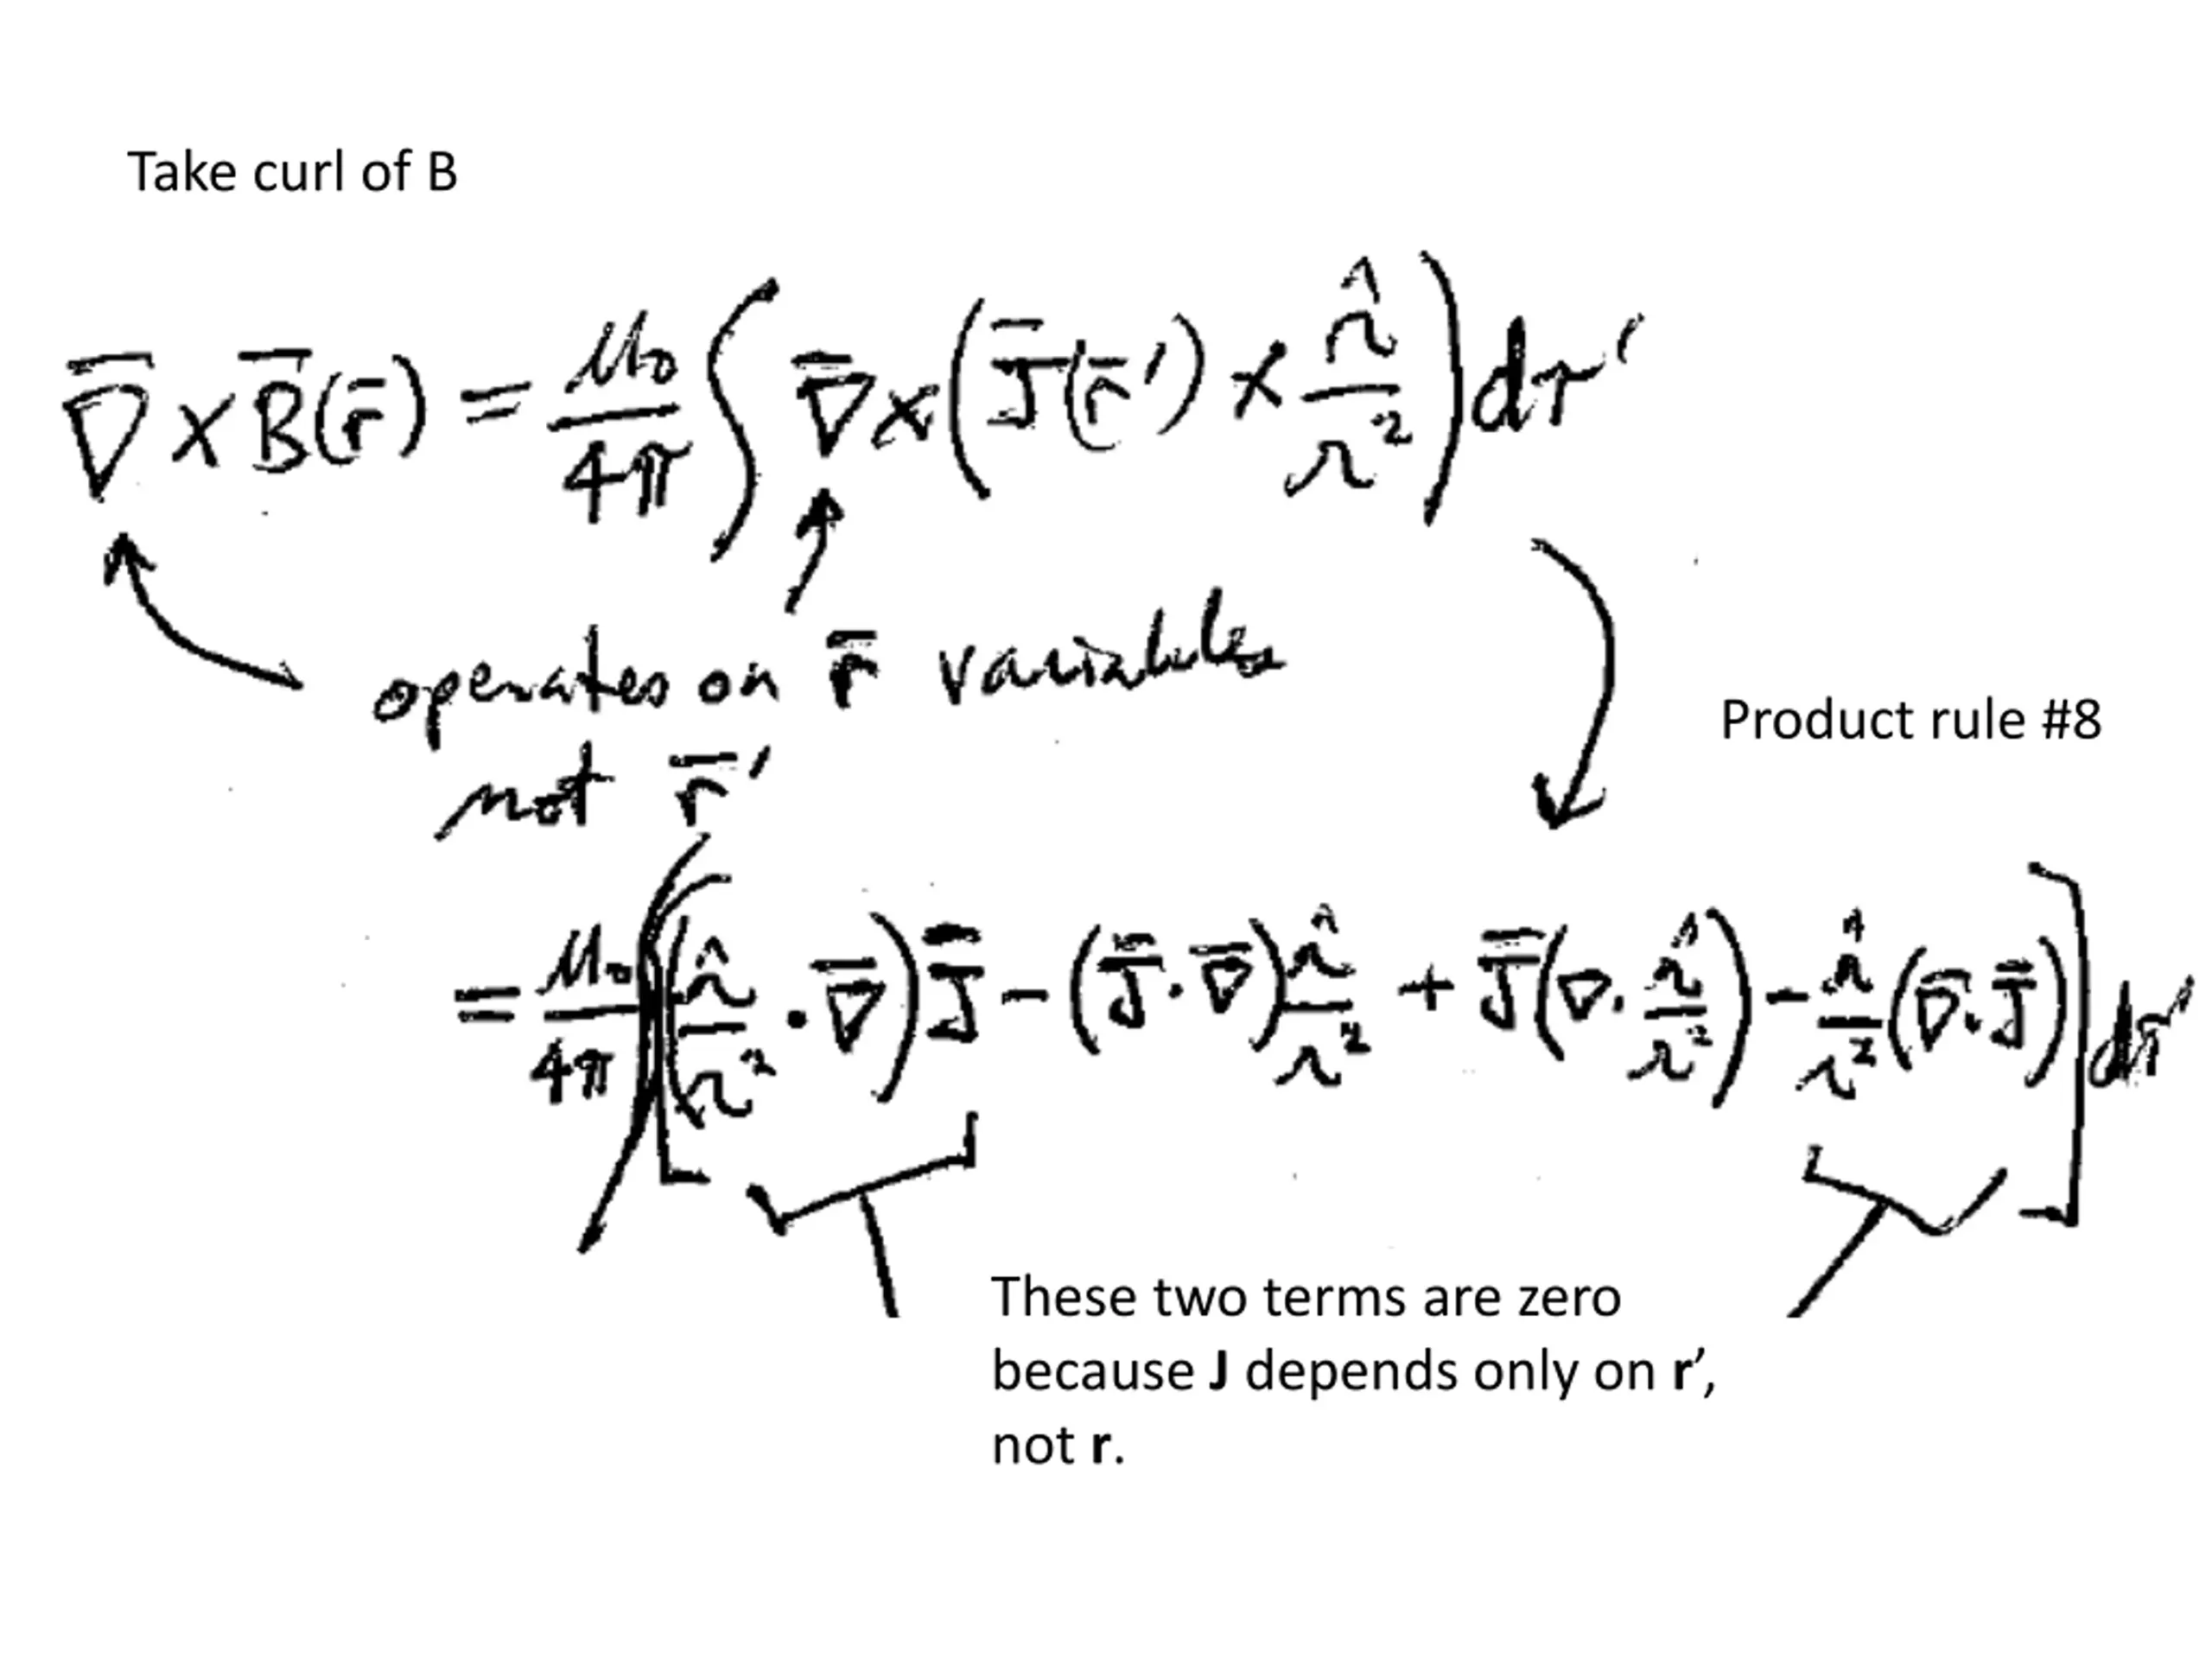 Take curl of B
∇̅ × B̅(r̅) = μ₀/4π ∫ ∇̅ × (J̅(r̅′) × r̂/r²) dτ′
operates on r̅ variables
not r̅′
Product rule #8
= μ₀/4π ∫ [(r̂/r² · ∇̅) J̅ − (J̅ · ∇̅) r̂/r² + J̅ (∇ · r̂/r²) − r̂/r² (∇̅ · J̅)] dτ′
These two terms are zero
because J depends only on r’,
not r.